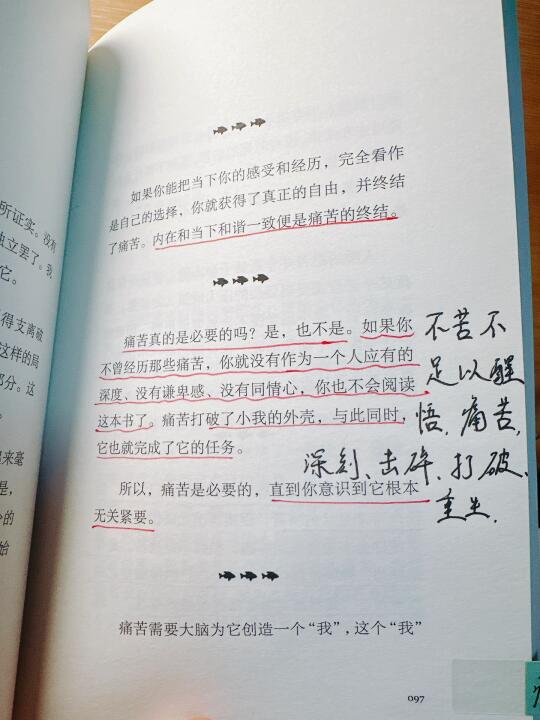 所证实。没有
独立罢了。我
它。
得支离破
这样的局
部分。这
出来毫
是,
的
始
如果你能把当下你的感受和经历,完全看作
是自己的选择,你就获得了真正的自由,并终结
了痛苦。内在和当下和谐一致便是痛苦的终结。
痛苦真的是必要的吗?是,也不是。如果你
不曾经历那些痛苦,你就没有作为一个人应有的
深度、没有谦卑感、没有同情心,你也不会阅读
这本书了。痛苦打破了小我的外壳,与此同时,
它也就完成了它的任务。
所以,痛苦是必要的,直到你意识到它根本
无关紧要。
痛苦需要大脑为它创造一个“我”,这个“我”
097
不苦不
足以醒
悟,痛苦,
深刻、击碎、打破、
重生.